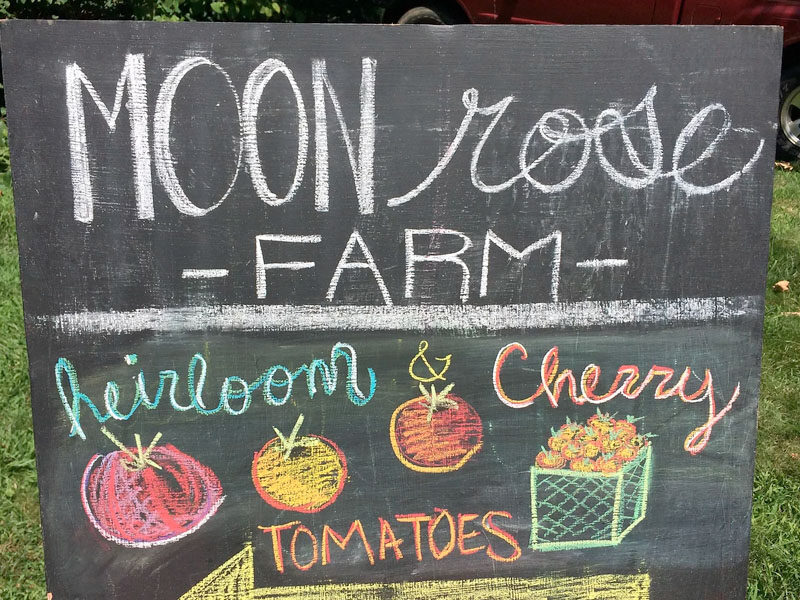 MOON rose
- FARM -
heirloom & Cherry
TOMATOES